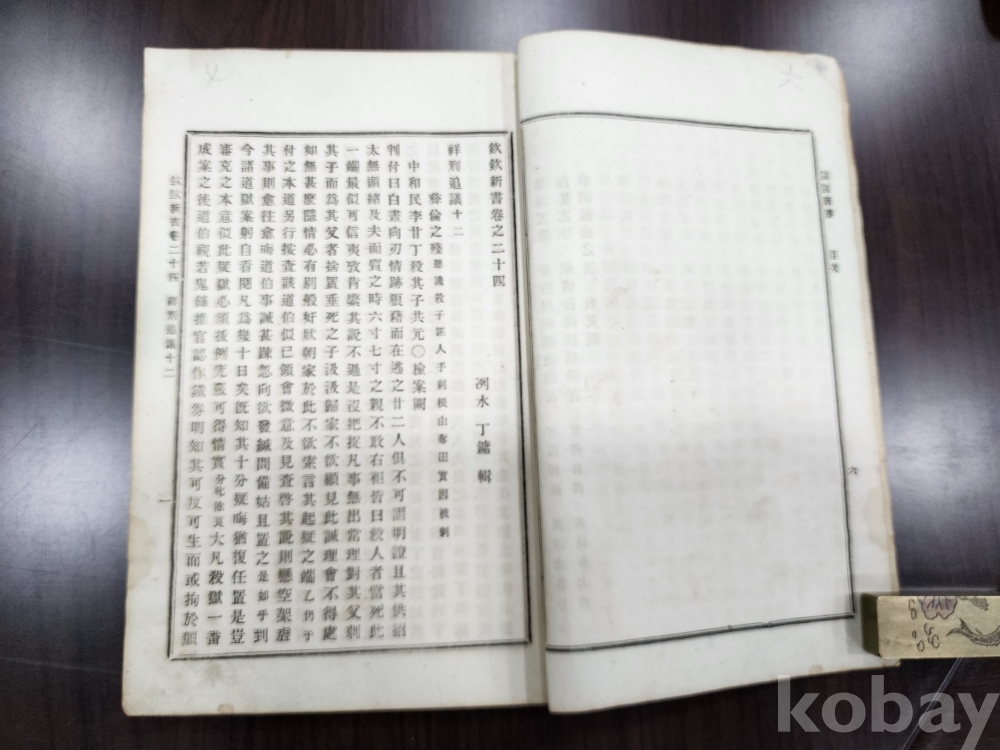 欽欽新書卷之二十四
洌水 丁鏞 輯
祥刑追議十二
彝倫之殘
中和民李甘丁殺其子共元○檢案闕
判付曰白晝向刃情跡狼藉而在逃之廿二人俱不可謂明證且其供招
太無頭緖及夫面質之時六寸七寸之親不敢右袒皆曰殺人者當死此
一端最似可信夷攷肯綮其說不過是沒把捉凡事無出當理對其父刺
其子而爲其父者捨置垂死之子汲汲歸家不欲顧見此誠理會不得處
如無甚麽隱情必有別般奸狀朝家於此不欲索言其起疑之端
付之本道另行按査該道伯似已領會微意及見査啓其說則懸空架虛
其事則愈往愈晦道伯事誠甚踈忽向欲發緘問備姑且置之是如乎到
今諸道獄案躬自看閱凡爲幾十日矣旣知其十分疑晦猶復任置是豈
審克之本意似此疑獄必須援例究覈可得情實 大凡殺獄一番
成案之後道伯視若鬼錄推官認作鐵券明知其可反可生而或拘於顔
欽欽新書卷二十四 祥刑追議十二
一
六
kobay